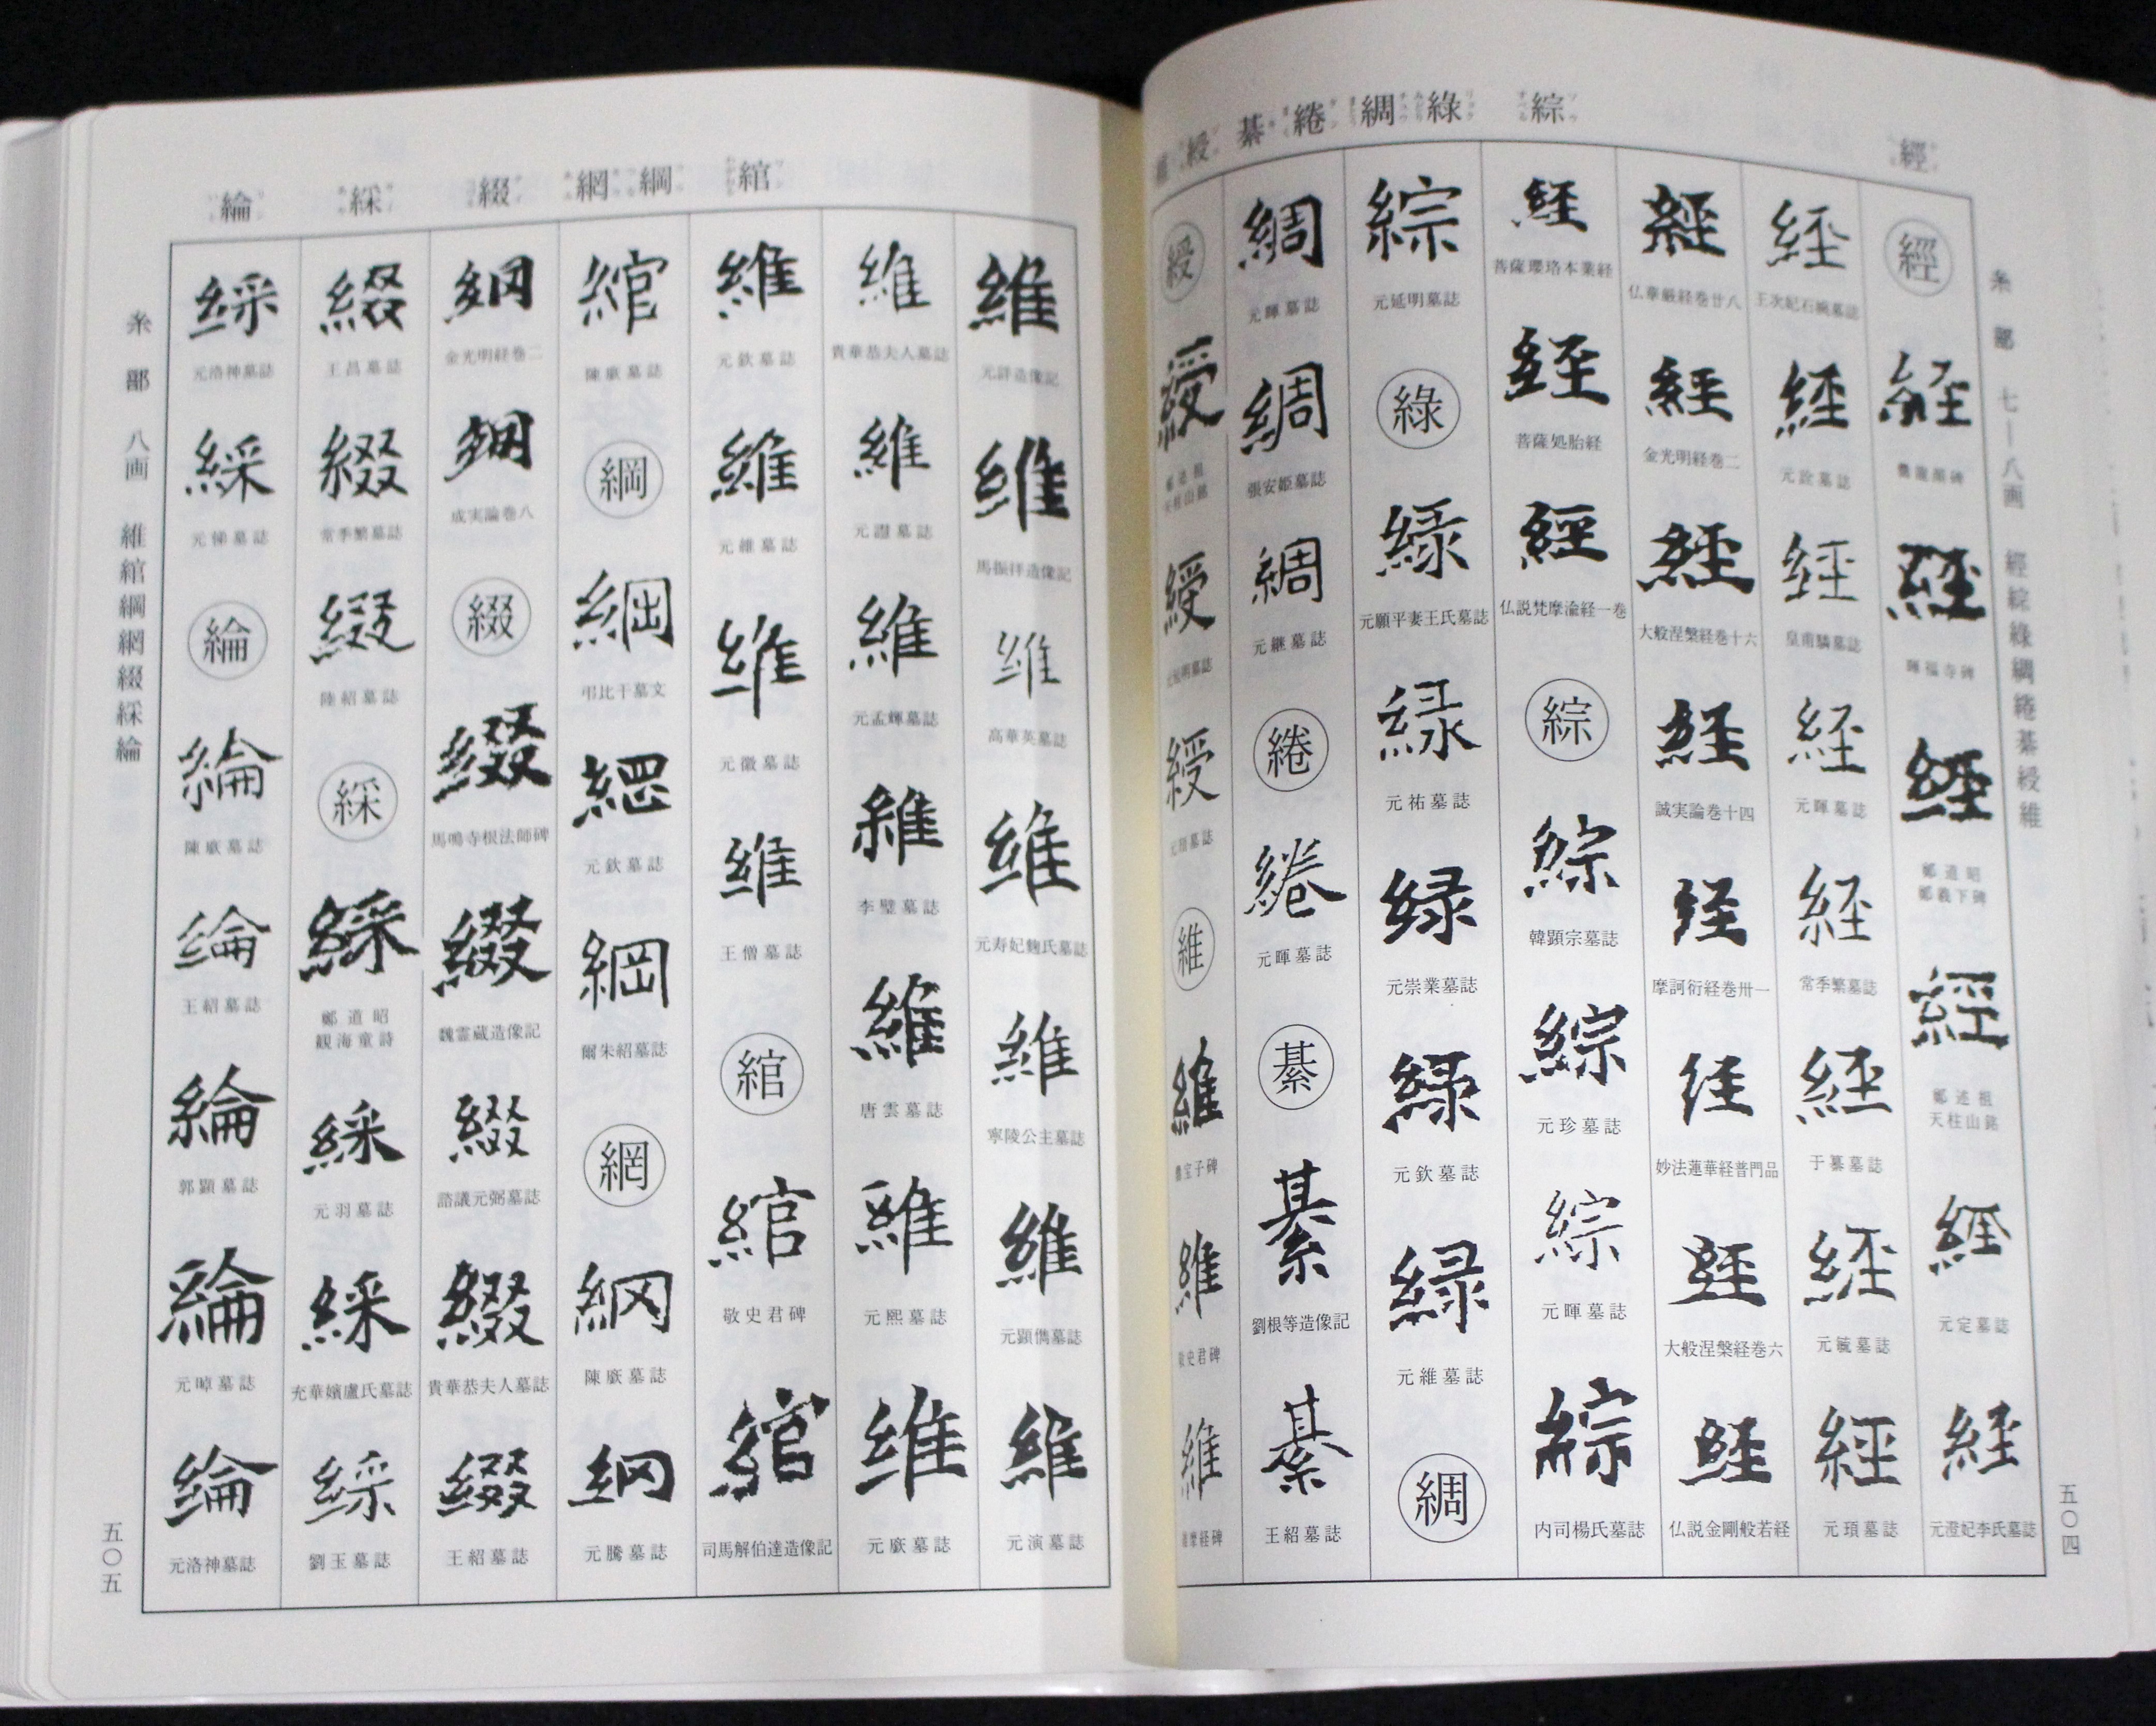 經 綜 綠 綢 綣 綦 綬
糸部 七—八画 經綜綠綢綣綦綬維
五〇四
經
経
爨龍顔碑
経
暉福寺碑
経
鄭道昭
鄭羲下碑
經
鄭述祖
天柱山銘
経
元定墓誌
経
元澄妃李氏墓誌
経
王次妃石婉墓誌
経
元詮墓誌
経
皇甫驎墓誌
経
元暉墓誌
経
常季繁墓誌
経
于纂墓誌
経
元毓墓誌
經
元頊墓誌
経
仏華厳経巻廿八
経
金光明経巻二
経
大般涅槃経巻十六
経
誠実論巻十四
経
摩訶衍経巻卅一
経
妙法蓮華経普門品
経
大般涅槃経巻六
経
仏説金剛般若経
経
菩薩瓔珞本業経
経
菩薩処胎経
経
仏説梵摩渝経一巻
綜
綜
韓顕宗墓誌
綜
元珍墓誌
綜
元暉墓誌
綜
内司楊氏墓誌
綜
元延明墓誌
綠
緑
元願平妻王氏墓誌
緑
元祐墓誌
緑
元崇業墓誌
緑
元欽墓誌
緑
元維墓誌
綢
綢
元暉墓誌
綢
張安姫墓誌
綢
元継墓誌
綣
綣
元暉墓誌
綦
綦
劉根等造像記
綦
王紹墓誌
綬
綬
鄭述祖
天柱山銘
綬
綬
維
維
維
維
綰 綱 網 綴 綵 綸
糸部 八画 維綰綱網綴綵綸
五〇五
維
元詳造像記
維
馬振拝造像記
維
高華英墓誌
維
元寿妃麹氏墓誌
維
寧陵公主墓誌
維
元顕儁墓誌
維
元演墓誌
維
貴華恭夫人墓誌
維
元澄墓誌
維
元孟輝墓誌
維
李璧墓誌
維
唐雲墓誌
維
元熙墓誌
維
元廞墓誌
維
元欽墓誌
維
元維墓誌
維
元徽墓誌
維
王僧墓誌
綰
綰
敬史君碑
綰
司馬解伯達造像記
綰
陳廞墓誌
綱
綱
弔比干墓文
綱
元欽墓誌
綱
爾朱紹墓誌
網
網
陳廞墓誌
網
元騰墓誌
網
金光明経巻二
網
成実論巻八
綴
綴
馬鳴寺根法師碑
綴
魏霊蔵造像記
綴
諮議元弼墓誌
綴
貴華恭夫人墓誌
綴
王紹墓誌
綴
王昌墓誌
綴
常季繁墓誌
綴
陸紹墓誌
綵
綵
鄭道昭
観海童詩
綵
元羽墓誌
綵
充華嬪盧氏墓誌
綵
劉玉墓誌
綵
元洛神墓誌
綵
元悌墓誌
綸
綸
陳廞墓誌
綸
王紹墓誌
綸
郭顕墓誌
綸
元晫墓誌
綸
元洛神墓誌